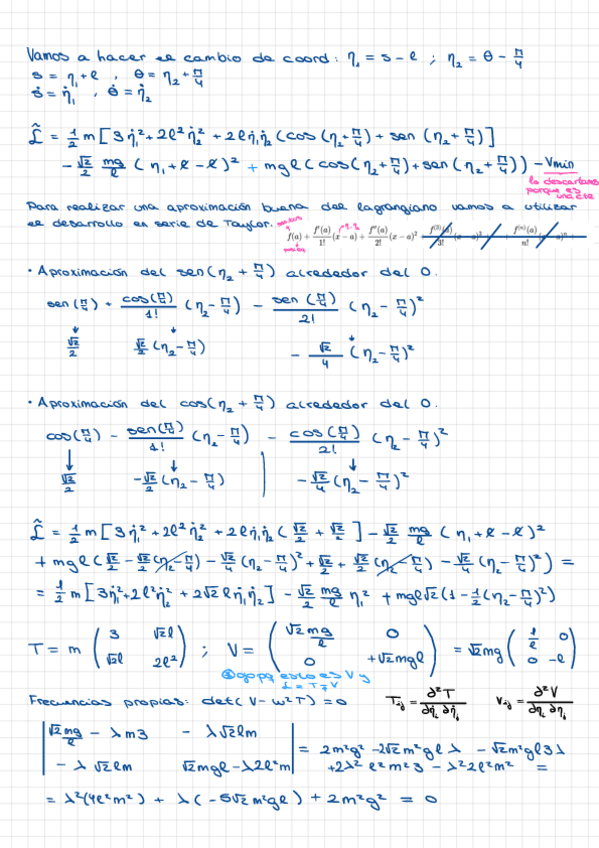 Vamos a hacer el cambio de coord: η₁ = s - ℓ ; η₂ = θ - π/4
s = η₁ + ℓ , θ = η₂ + π/4
ṡ = η̇₁ , θ̇ = η̇₂
L̃ = 1/2 m [3η̇₁² + 2ℓ²η̇₂² + 2ℓη̇₁η̇₂ (cos(η₂+π/4) + sen(η₂+π/4)]
- √2/2 mg/ℓ (η₁ + ℓ - ℓ)² + mgℓ (cos(η₂+π/4) + sen(η₂+π/4)) - Vmin
lo descartamos
porque es
una cte
Para realizar una aproximación buena del lagrangiano vamos a utilizar
el desarrollo en serie de Taylor.
f(a) + f'(a)/1! (x - a) + f''(a)/2! (x - a)² + f⁽³⁾(a)/3! (x - a)³ + ⋯ + f⁽ⁿ⁾(a)/n! (x - a)ⁿ +
• Aproximación del sen(η₂ + π/4) alrededor del 0.
sen(π/4) + cos(π/4)/1! (η₂ - π/4) - sen(π/4)/2! (η₂ - π/4)²
√2/2 √2/2 (η₂ - π/4) - √2/4 (η₂ - π/4)²
• Aproximación del cos(η₂ + π/4) alrededor del 0.
cos(π/4) - sen(π/4)/1! (η₂ - π/4) - cos(π/4)/2! (η₂ - π/4)²
√2/2 -√2/2 (η₂ - π/4) -√2/4 (η₂ - π/4)²
L̃ = 1/2 m [3η̇₁² + 2ℓ²η̇₂² + 2ℓη̇₁η̇₂ (√2/2 + √2/2] - √2/2 mg/ℓ (η₁ + ℓ - ℓ)²
+ mgℓ (√2/2 - √2/2 (η₂ - π/4) - √2/4 (η₂ - π/4)² + √2/2 + √2/2 (η₂ - π/4) - √2/4 (η₂ - π/4)²) =
= 1/2 m [3η̇₁² + 2ℓ²η̇₂² + 2√2 ℓη̇₁η̇₂] - √2/2 mg/ℓ η₁² + mgℓ√2 (1 - 1/2 (η₂ - π/4)²)
T = m (3 √2ℓ ; √2ℓ 2ℓ²) ; V = (√2mg/ℓ 0 ; 0 +√2mgℓ) = √2mg (1/ℓ 0 ; 0 -ℓ)
ojo pq esto es V y
L = T - V
Frecuencias propias: det(V - ω²T) = 0 T_ij = ∂²T/∂η̇ᵢ ∂η̇ⱼ V_ij = ∂²V/∂ηᵢ ∂ηⱼ
|√2mg/ℓ - λm3 - λ√2ℓm| = 2m²g² - 2√2m²gℓλ - √2m²gℓ3λ
|-λ√2ℓm √2mgℓ - λ2ℓ²m| +2λ²ℓ²m²3 - λ²2ℓ²m² =
= λ²(4ℓ²m²) + λ(-5√2m²gℓ) + 2m²g² = 0